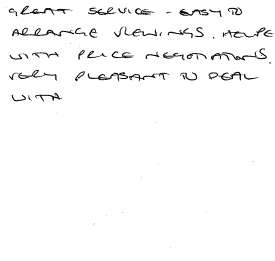 GREAT SERVICE - EASY TO
ARRANGE VIEWINGS. HELPE
WITH PRICE NEGOTIATIONS.
VERY PLEASANT TO DEAL
WITH